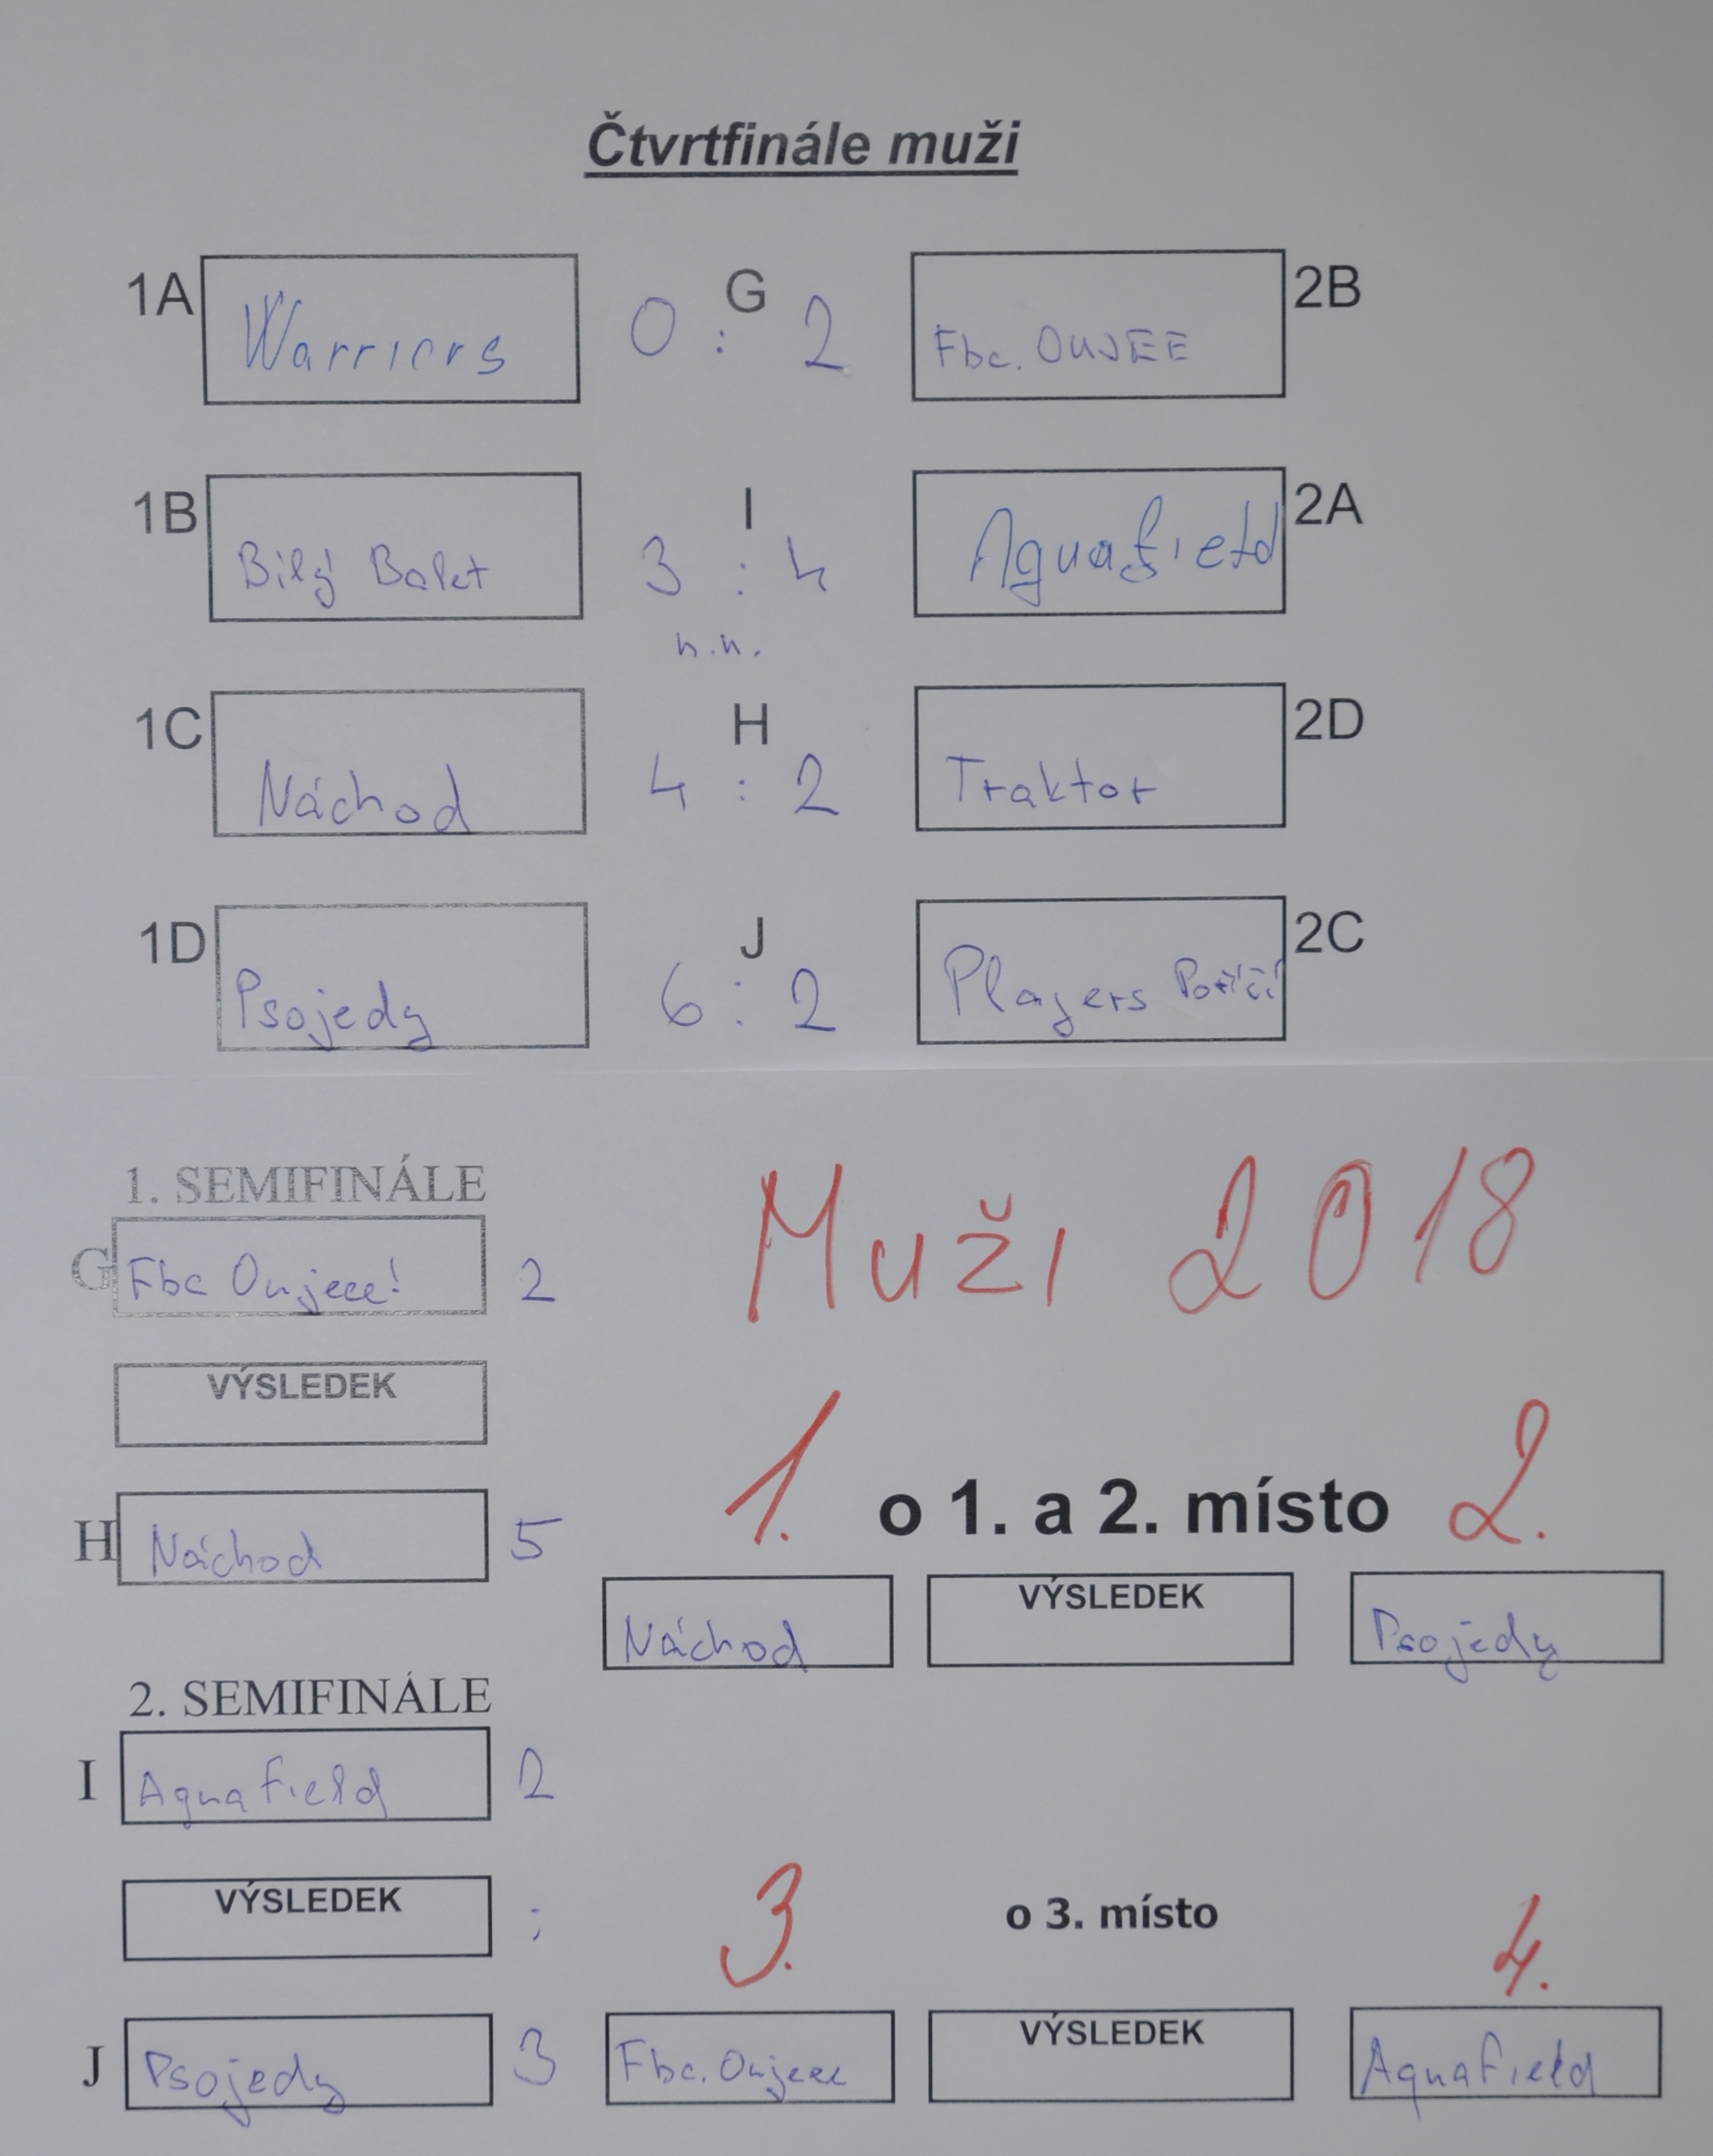 Čtvrtfinále muži
1A Warriors 0 : 2 G Fbc. OUJEE 2B
1B Bílý Balet 3 : 4 I Aquafield 2A
n.n.
1C Náchod 4 : 2 H Traktor 2D
1D Psojedy 6 : 2 J Players Poříčí 2C
1. SEMIFINÁLE
Muži 2018
G Fbc Oujeee! 2
VÝSLEDEK
1. o 1. a 2. místo 2.
H Náchod 5
Náchod VÝSLEDEK Psojedy
2. SEMIFINÁLE
I Aquafield 2
VÝSLEDEK :
3. o 3. místo 4.
J Psojedy 3
Fbc. Oujeee VÝSLEDEK Aquafield